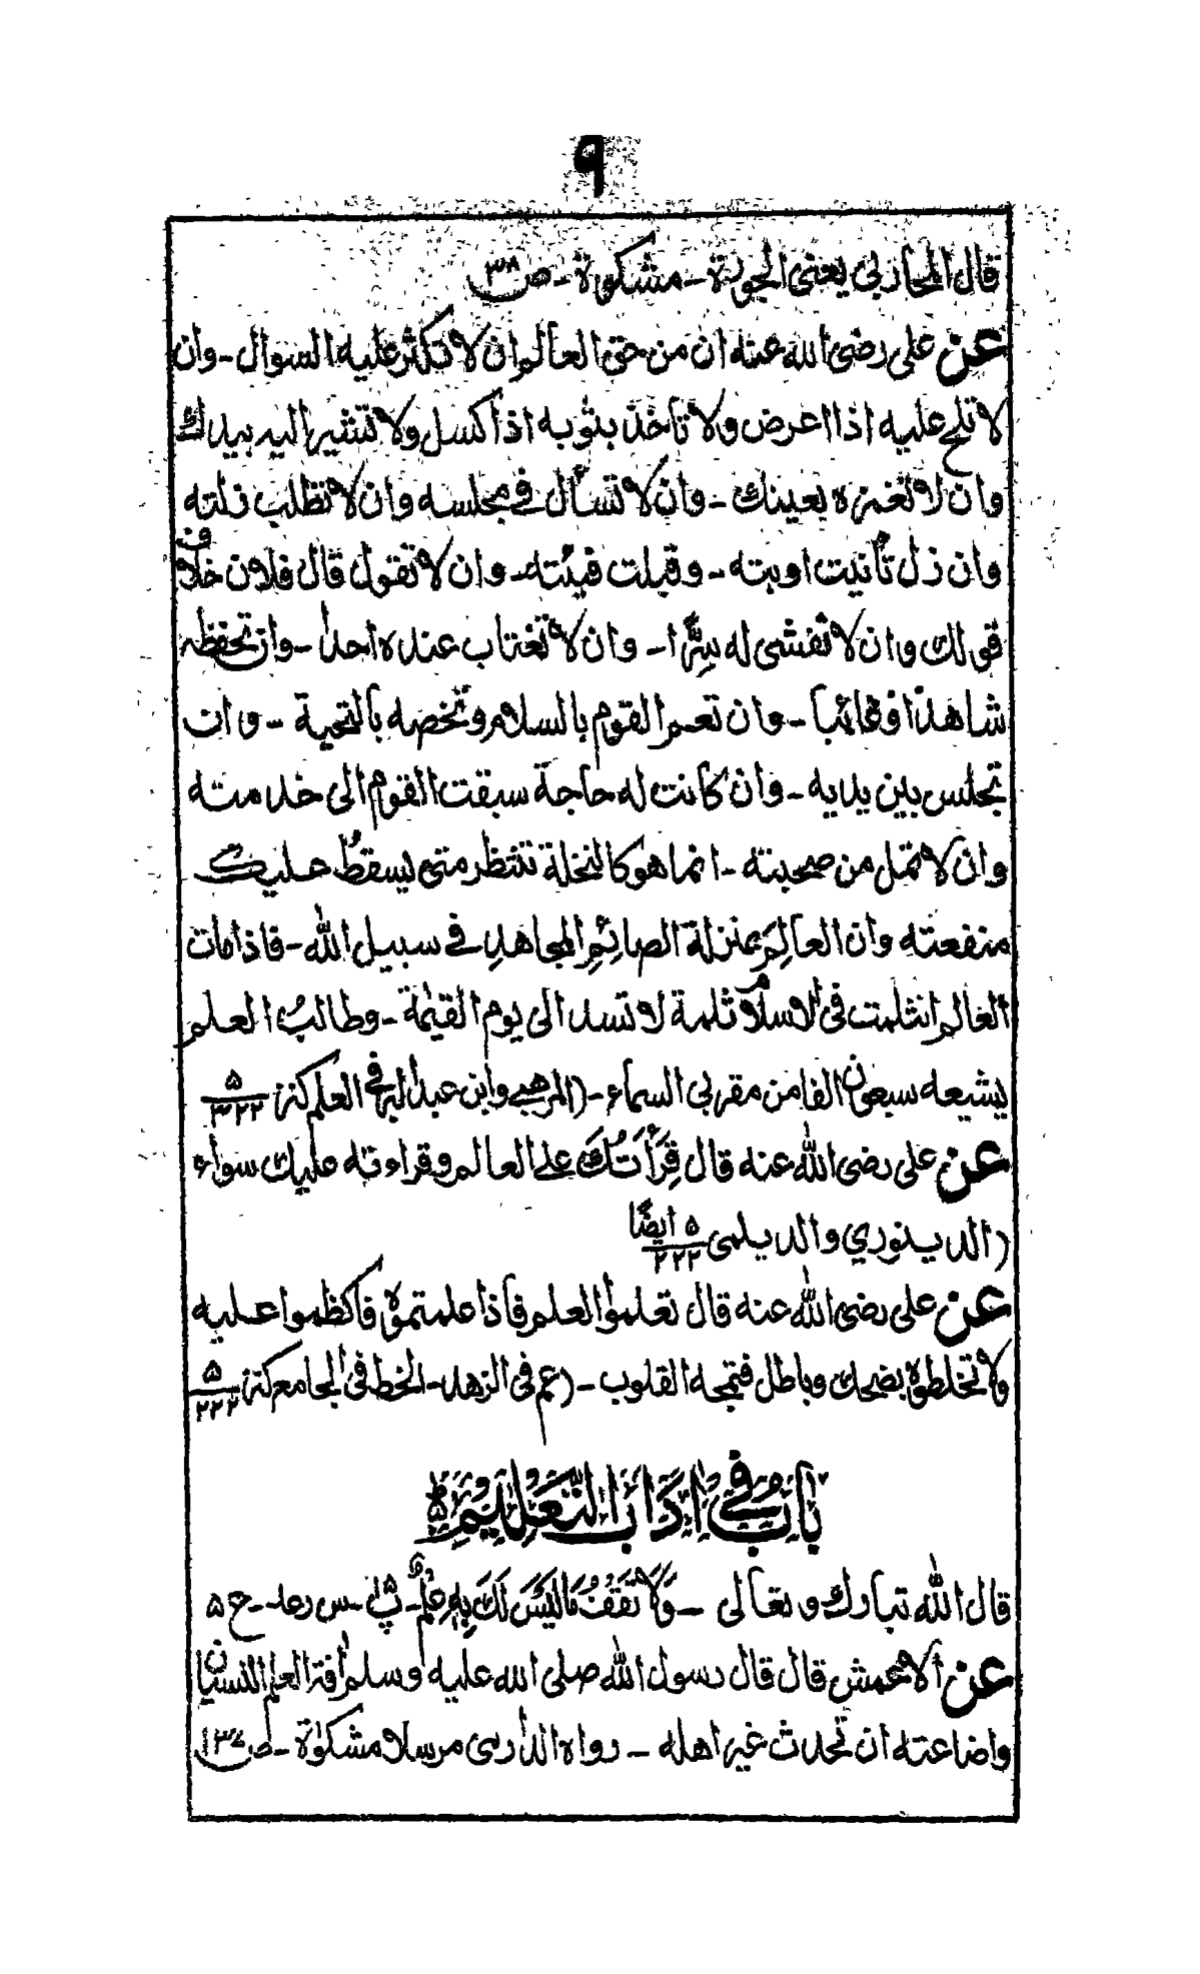 ٩
قال المحاربى يعنى الجورة - مشكوة - ص ٣٨
عن على رضى الله عنه ان من حق العالم ان لا تكثر عليه السوال - وان
لا تلح عليه اذا اعرض ولا تأخذ بثوبه اذا كسل ولا تشير اليه بيدك
وان لا تغمزه بعينك - وان لا تسأل فى مجلسه وان لا تطلب زلته
وان زل تأنيت اوبته - وقبلت فيئته - وان لا تقول قال فلان خلاف
قولك وان لا تفشى له سرًّا - وان لا تغتاب عنده احدا - وان تحفظه
شاهدًا وغائبا - وان تعم القوم بالسلام وتخصه بالتحية - وان
تجلس بين يديه - وان كانت له حاجة سبقت القوم الى خدمته
وان لا تمل من صحبته - انما هو كالنخلة تنتظر متى يسقط عليك
منفعته وان العالِم بمنزلة الصائِمِ المجاهدِ فى سبيل الله - فاذا مات
العالم انثلمت فى الاسلام ثلمة لا تسد الى يوم القيٰمة - وطالبُ العلم
يشيعه سبعون الفا من مقربى السماء - (المرهبى وابن عبد البر فى العلم كنز ٥/٣٢٢
عن على رضى الله عنه قال قِرَأَتُكَ على العالم وقراءته عليك سواء
(الدينوري والديلمى ٥/٢٢٢ ايضًا
عن على رضى الله عنه قال تعلموا العلم فاذا علمتموه فاكظموا عليه
ولا تخلطوه بضحك وباطل فتمجه القلوب - (عم فى الزهد - الخط فى الجامع كنز ٥/٢٢٢
بَابٌ فِىْ اٰدَابِ التَّعْلِيْمِ
قال الله تبارك وتعالى - وَلَا تَقْفُ مَا لَيْسَ لَكَ بِهٖ عِلْمٌ - پ ١٥ - س رعد - ح ٥
عن الاعمش قال قال رسول الله صلى الله عليه وسلم اٰفة العلم النسيان
واضاعته ان تحدث غير اهله - رواه الدارمى مرسلا مشكوٰة - ص ٣٧